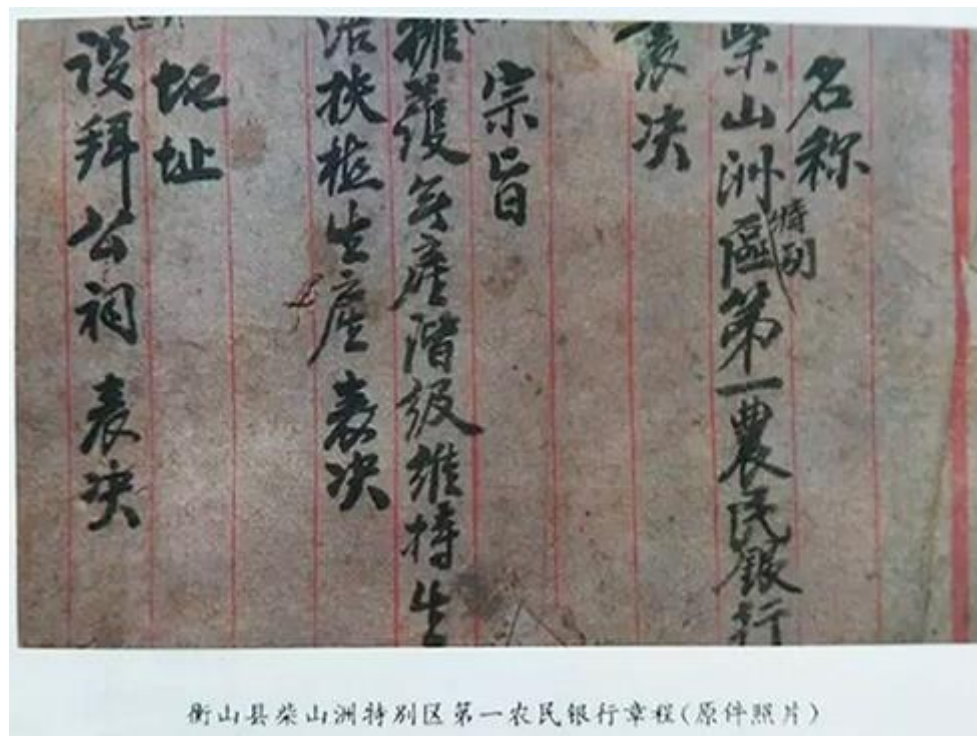 名称
柴山洲特别區第一農民银行
表决
宗旨
擁護无產階级維持生
活扶植生產 表决
地址
设拜公祠 表决
衡山县柴山洲特别区第一农民银行章程(原件照片)